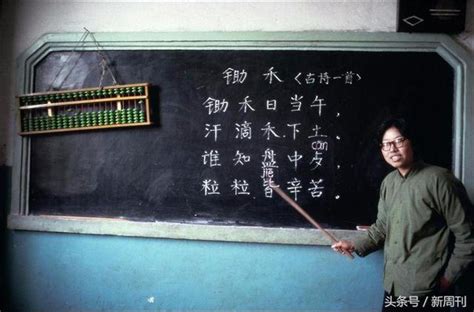 锄禾〈古诗一首〉
锄禾日当午，
汗滴禾下土，
cān
谁知盘中歺，
粒粒皆辛苦．
头条号 / 新周刊